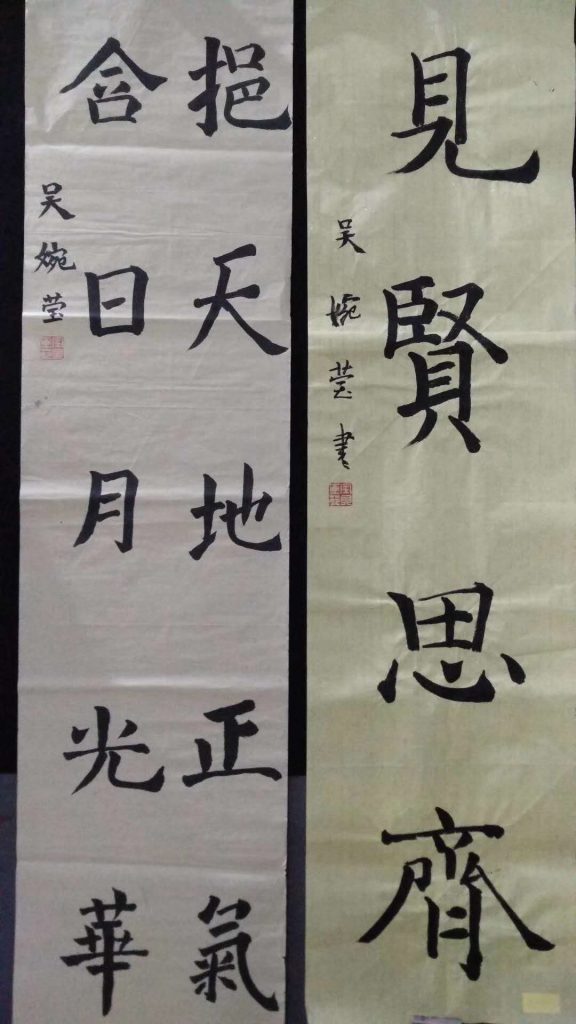 見賢思齊
吴婉莹書
挹天地正氣
含日月光華
吴婉莹